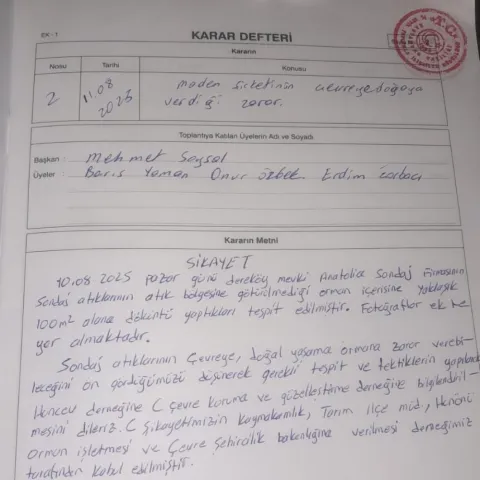 EK - 1
KARAR DEFTERİ
Kararın
Nosu Tarihi Konusu
2 11.08 2025 maden şirketinin çevreye doğaya
verdiği zarar.
Toplantıya Katılan Üyelerin Adı ve Soyadı
Başkan : Mehmet Soysal
Üyeler : Barış Yaman Onur Özbek Erdim
Kararın Metni
ŞİKAYET
10.08 2025 pazar günü dereköy mevki Anatolia Sondaj firmasının
Sondaj atıklarının atık bölgesine götürülmediği orman içerisine yaklaşık
100m² alana döküntü yaptıkları tespit edilmiştir. Fotoğraflar ek te
yer almaktadır.
Sondaj atıklarının Çevreye, doğal yaşama ormana zarar verebi-
leceğini ön gördüğümüzü düşünerek gerekli tespit ve tektiklerin yapılarak
derneğine C çevre koruma ve güzelleştirme derneğine bilgilendiril-
mesini dileriz. C Şikayetimizin kaymakamlık, Tarım ilçe müd,
orman işletmesi ve Çevre Şehircilik bakanlığına verilmesi derneğimiz
tarafından kabul edilmiştir.